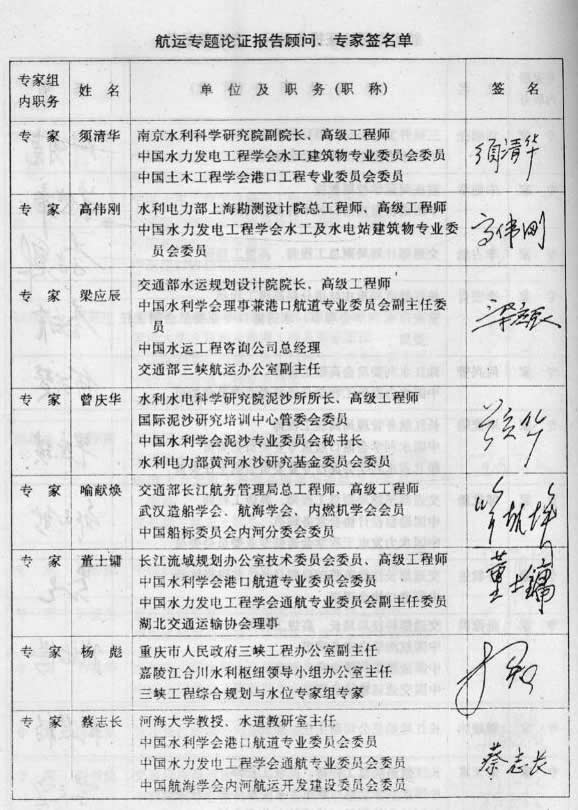 航运专题论证报告顾问、专家签名单
专家组内职务 姓 名 单 位 及 职 务 (职 称) 签 名
专 家 须清华 南京水利科学研究院副院长、高级工程师 须清华
中国水力发电工程学会水工建筑物专业委员会委员
中国土木工程学会港口工程专业委员会委员
专 家 高伟刚 水利电力部上海勘测设计院总工程师、高级工程师 高伟刚
中国水力发电工程学会水工及水电站建筑物专业委
员会委员
专 家 梁应辰 交通部水运规划设计院院长、高级工程师 梁应辰
中国水利学会理事兼港口航道专业委员会副主任委
员
中国水运工程咨询公司总经理
交通部三峡航运办公室副主任
专 家 曾庆华 水利水电科学研究院泥沙所所长、高级工程师
国际泥沙研究培训中心管委会委员
中国水利学会泥沙专业委员会秘书长
水利电力部黄河水沙研究基金委员会委员
专 家 喻献焕 交通部长江航务管理局总工程师、高级工程师
武汉造船学会、航海学会、内燃机学会会员
中国船标委员会内河分委会委员
专 家 董士镛 长江流域规划办公室技术委员会委员、高级工程师 董士镛
中国水利学会港口航道专业委员会委员
中国水力发电工程学会通航专业委员会副主任委员
湖北交通运输协会理事
专 家 杨 彪 重庆市人民政府三峡工程办公室副主任
嘉陵江合川水利枢纽领导小组办公室主任
三峡工程综合规划与水位专家组专家
专 家 蔡志长 河海大学教授、水道教研室主任 蔡志长
中国水利学会港口航道专业委员会委员
中国水力发电工程学会通航专业委员会委员
中国航海学会内河航运开发建设委员会委员